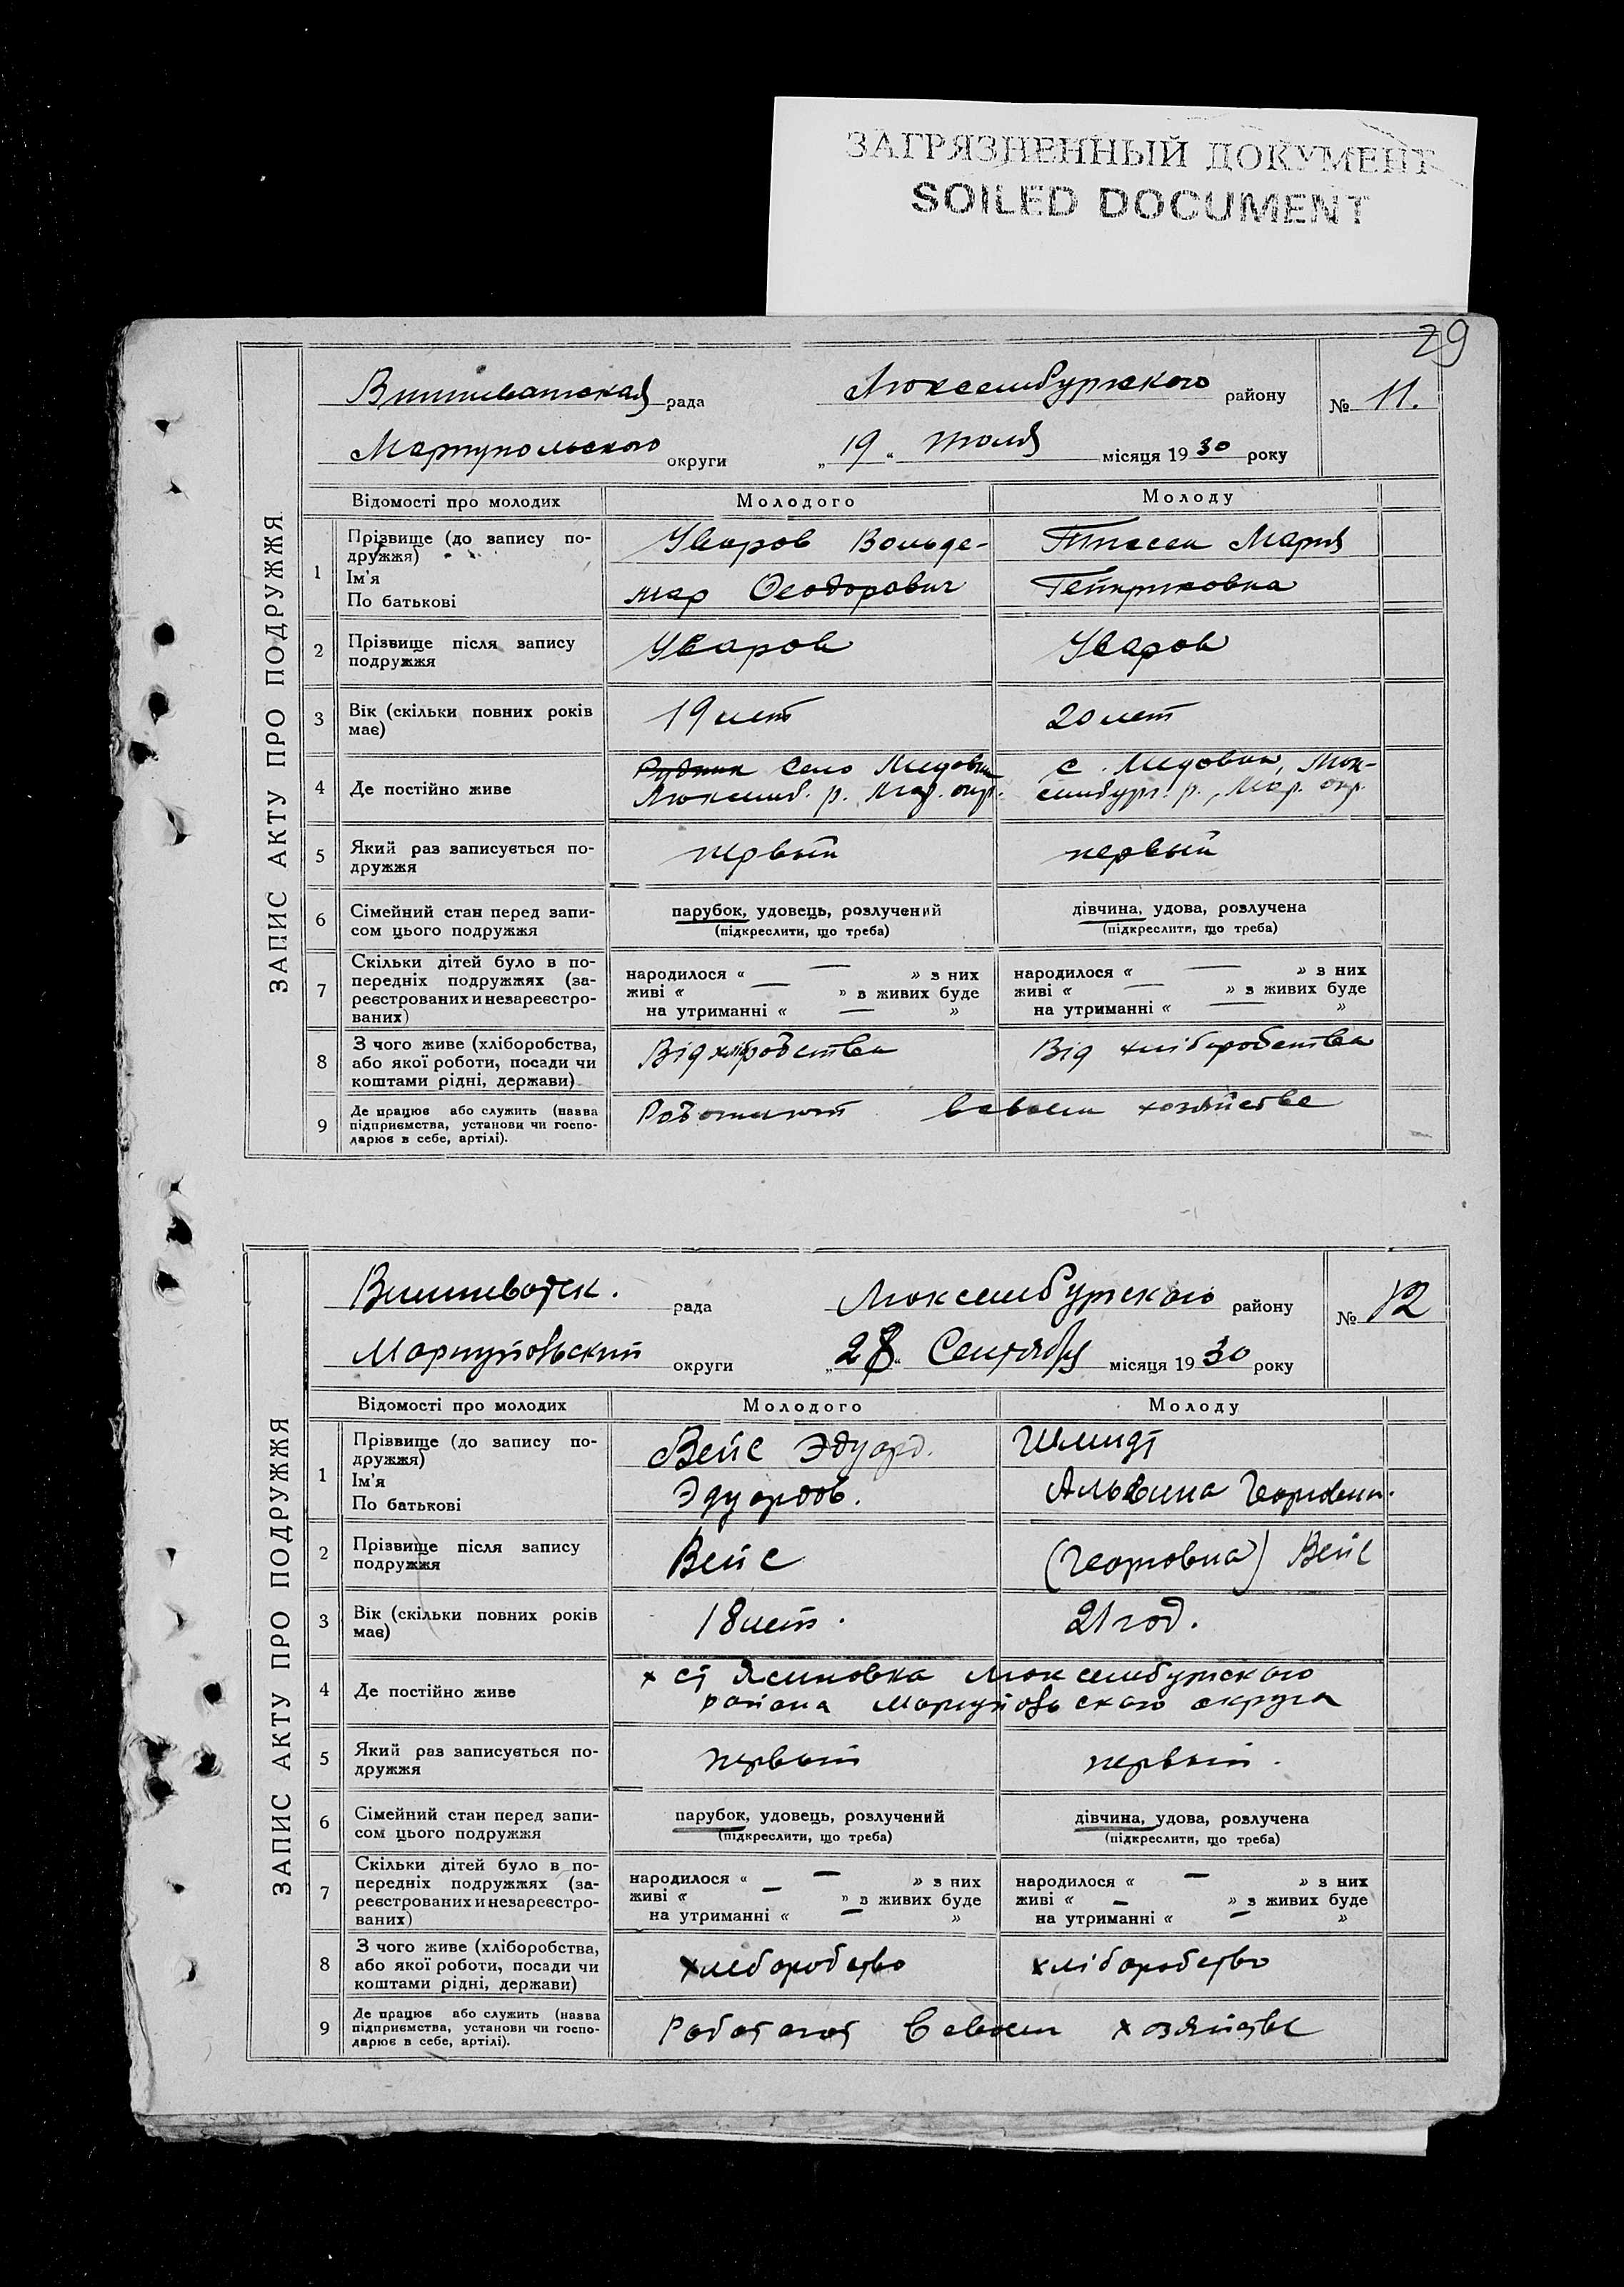 ЗАГРЯЗНЕННЫЙ ДОКУМЕНТ
SOILED DOCUMENT
29
ЗАПИС АКТУ ПРО ПОДРУЖЖЯ
рада Люксембургского району № 11.
Мариупольского округи „19“ июля місяця 1930 року
Відомості про молодих Молодого Молоду
1 Прізвище (до запису по-
дружжя)
Ім'я
По батькові
Уваров Вольде-
мар Феодорович
Тиссен Мария
Гейнриховна
2 Прізвище після запису
подружжя
Уваров Уваров
3 Вік (скільки повних років
має)
19 лет 20 лет
4 Де постійно живе
Село
Люксемб. р. Мар. окр.
с. Люк-
сембург. р., Мар. окр.
5 Який раз записується по-
дружжя
первый первый
6 Сімейний стан перед запи-
сом цього подружжя
парубок, удовець, розлучений
(підкреслити, що треба)
дівчина, удова, розлучена
(підкреслити, що треба)
7 Скільки дітей було в по-
передніх подружжях (за-
реєстрованих и незареєстро-
ваних)
народилося « — » з них
живі « — » з живих буде
на утриманні « — »
народилося « — » з них
живі « — » з живих буде
на утриманні « — »
8 З чого живе (хліборобства,
або якої роботи, посади чи
коштами рідні, держави)
Від Від хліборобства
9 Де працює або служить (назва
підприємства, установи чи госпо-
дарює в себе, артілі).
Работают в своем хозяйстве
ЗАПИС АКТУ ПРО ПОДРУЖЖЯ
рада Люксембургского району № 12
Мариупольский округи „28“ Сентября місяця 1930 року
Відомості про молодих Молодого Молоду
1 Прізвище (до запису по-
дружжя)
Ім'я
По батькові
Вейс Эдуард.
Эдуардов.
Шмидт
Альвина
2 Прізвище після запису
подружжя
Вейс (Георговна) Вейс
3 Вік (скільки повних років
має)
18 лет. 21 год.
4 Де постійно живе
х ст Ясиновка Люксембургского
района Мариупольского округа
5 Який раз записується по-
дружжя
первый первый.
6 Сімейний стан перед запи-
сом цього подружжя
парубок, удовець, розлучений
(підкреслити, що треба)
дівчина, удова, розлучена
(підкреслити, що треба)
7 Скільки дітей було в по-
передніх подружжях (за-
реєстрованих и незареєстро-
ваних)
народилося « — » з них
живі « — » з живих буде
на утриманні « — »
народилося « — » з них
живі « — » з живих буде
на утриманні « — »
8 З чого живе (хліборобства,
або якої роботи, посади чи
коштами рідні, держави)
хлеборобство хліборобство
9 Де працює або служить (назва
підприємства, установи чи госпо-
дарює в себе, артілі).
Работают в своем хозяйстве